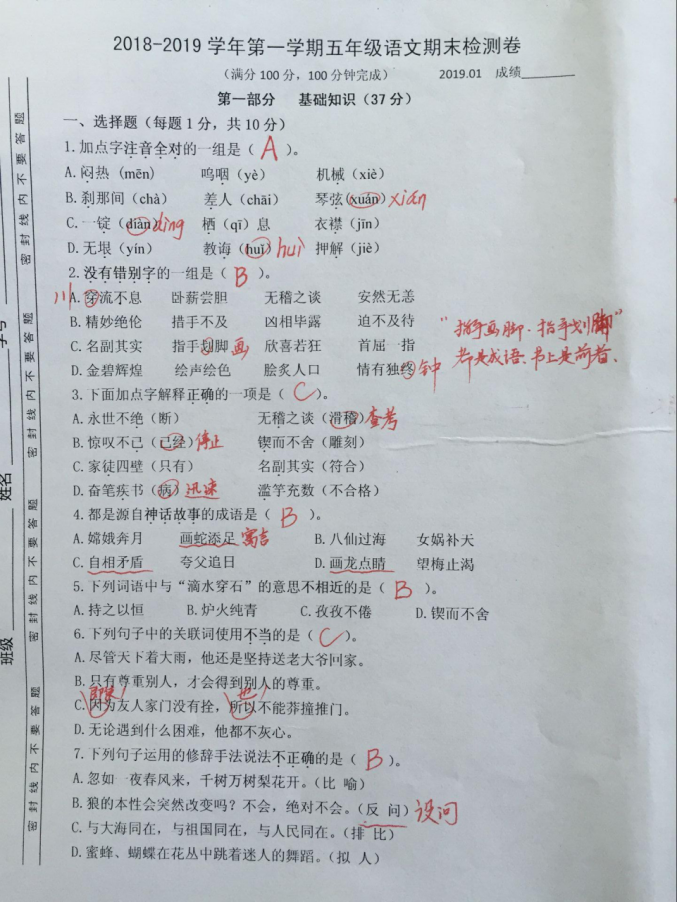 2018-2019 学年第一学期五年级语文期末检测卷
（满分 100 分，100 分钟完成） 2019.01 成绩______
第一部分 基础知识（37 分）
一、选择题（每题 1 分，共 10 分）
1.加点字注音全对的一组是（ A ）。
A.闷热（mēn） 呜咽（yè） 机械（xiè）
B.刹那间（chà） 差人（chāi） 琴弦(xuán) xián
C.一锭（diàn）dìng 栖（qī）息 衣襟（jīn）
D.无垠（yín） 教诲（huǐ）huì 押解（jiè）
2.没有错别字的一组是（ B ）。
川 A.穿流不息 卧薪尝胆 无稽之谈 安然无恙
B.精妙绝伦 措手不及 凶相毕露 迫不及待
C.名副其实 指手划脚 画 欣喜若狂 首屈一指
D.金碧辉煌 绘声绘色 脍炙人口 情有独终 钟
"指手画脚、指手划脚"
都是成语、书上是前者、
3.下面加点字解释正确的一项是（ C ）。
A.永世不绝（断） 无稽之谈（滑稽）查考
B.惊叹不已（已经）停止 锲而不舍（雕刻）
C.家徒四壁（只有） 名副其实（符合）
D.奋笔疾书（病）迅速 滥竽充数（不合格）
4.都是源自神话故事的成语是（ B ）。
A.嫦娥奔月 画蛇添足 寓言 B.八仙过海 女娲补天
C.自相矛盾 夸父追日 D.画龙点睛 望梅止渴
5.下列词语中与“滴水穿石”的意思不相近的是（ B ）。
A.持之以恒 B.炉火纯青 C.孜孜不倦 D.锲而不舍
6.下列句子中的关联词使用不当的是（ C ）。
A.尽管天下着大雨，他还是坚持送老大爷回家。
B.只有尊重别人，才会得到别人的尊重。
即使！ 也！
C.因为友人家门没有拴，所以不能莽撞推门。
D.无论遇到什么困难，他都不灰心。
7.下列句子运用的修辞手法说法不正确的是（ B ）。
A.忽如一夜春风来，千树万树梨花开。（比 喻）
B.狼的本性会突然改变吗？不会，绝对不会。（反 问）设问
C.与大海同在，与祖国同在，与人民同在。（排 比）
D.蜜蜂、蝴蝶在花丛中跳着迷人的舞蹈。（拟 人）
密 封 线 内 不 要 答 题
密 封 线 内 不 要 答 题
密 封 线 内 不 要 答 题
密 封 线 内 不 要 答 题
班级
姓名